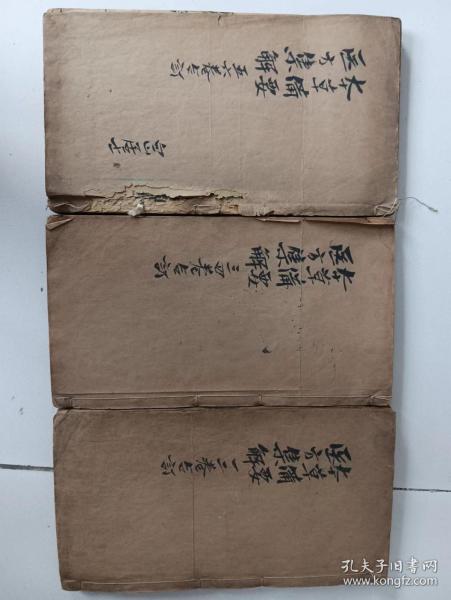 本草備要
医方集解
五六卷合訂
本草備要
医方集解
三四卷合訂
本草備要
医方集解
一二卷合訂
孔夫子旧书网
www.kongfz.com